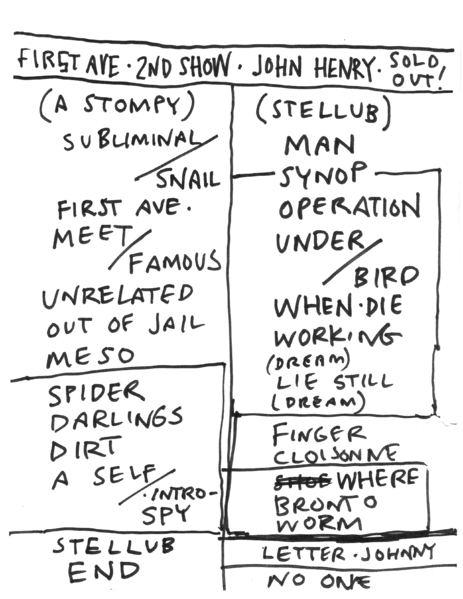 FIRST AVE · 2ND SHOW · JOHN HENRY · SOLD OUT!
(A STOMPY)
SUBLIMINAL/
SNAIL
FIRST AVE.
MEET/
FAMOUS
UNRELATED
OUT OF JAIL
MESO
SPIDER
DARLINGS
DIRT
A SELF/
·INTRO-
SPY
STELLUB
END
(STELLUB)
MAN
SYNOP
OPERATION
UNDER/
BIRD
WHEN·DIE
WORKING
(DREAM)
LIE STILL
(DREAM)
FINGER
CLOISONNE
WHERE
BRONTO
WORM
LETTER·JOHNNY
NO ONE